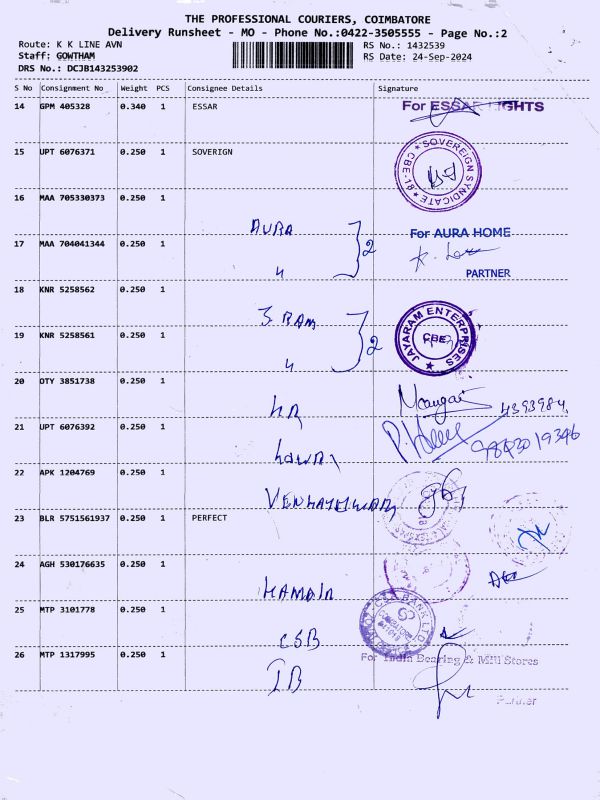 THE PROFESSIONAL COURIERS, COIMBATORE
Delivery Runsheet - MO - Phone No.:0422-3505555 - Page No.:2
Route: K K LINE AVN
RS No.: 1432539
Staff: GOWTHAM
RS Date: 24-Sep-2024
DRS No.: DCJB143253902
S No Consignment No Weight PCS Consignee Details Signature
14 GPM 405328 0.340 1 ESSAR For ESSAR LIGHTS
15 UPT 6076371 0.250 1 SOVERIGN
SOVEREIGN SYNDICATE ★ CBE-18 ★
16 MAA 705330373 0.250 1
AURA
2
For AURA HOME
17 MAA 704041344 0.250 1
"
PARTNER
18 KNR 5258562 0.250 1
J RAM
2
JAYARAM ENTERPRISES ★
CBE
19 KNR 5258561 0.250 1
"
20 OTY 3851738 0.250 1
HR
4393984
21 UPT 6076392 0.250 1
9843019346
22 APK 1204769 0.250 1
23 BLR 5751561937 0.250 1 PERFECT
24 AGH 530176635 0.250 1
25 MTP 3101778 0.250 1
CSB
CSB BANK LTD
26 MTP 1317995 0.250 1
IB
For India Bearing & Mill Stores
Partner